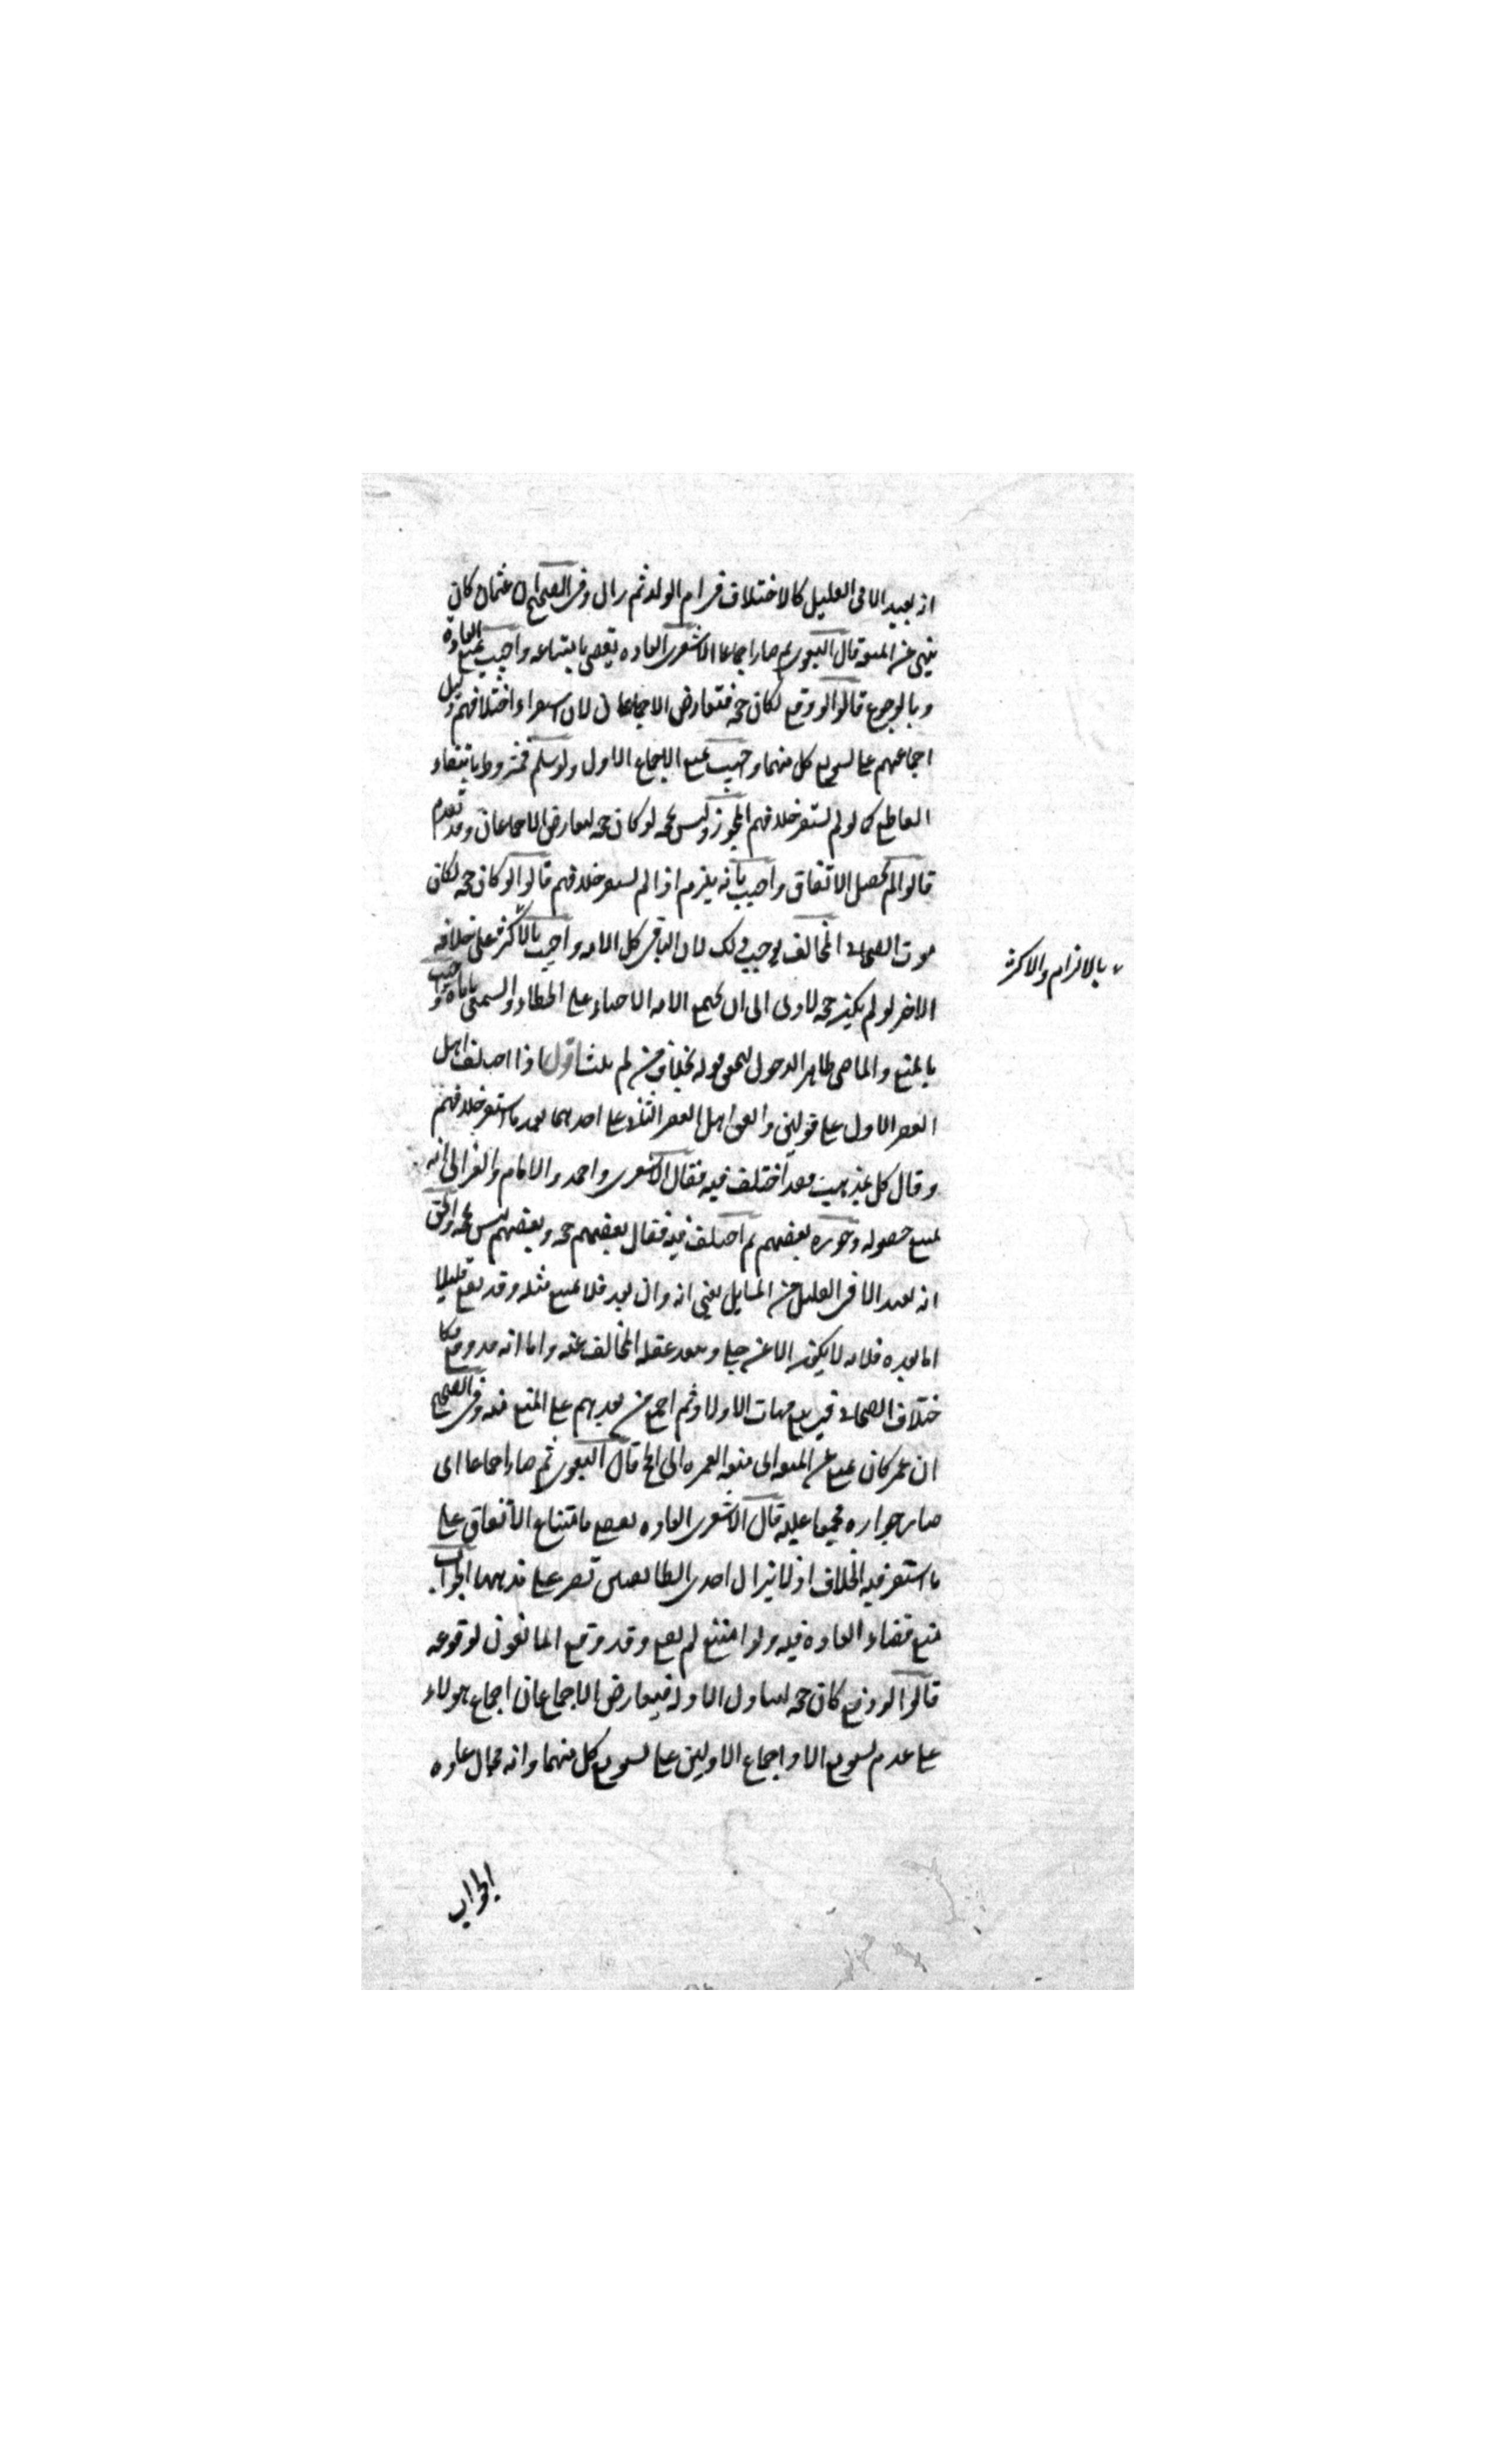 انه بعيد الا في القليل كالاختلاف في ام الولد ثم زال وفي الصحيح ان عثمان كان
ينهى عن المتعة قال البغوي ثم صار اجماعا الاشعري العادة تقضي بامتناعه واجيب بمنع العادة
وبالوقوع قالوا لو وقع لكان حجة فتعارض الاجماعان لان استقراء اختلافهم دليل
اجماعهم على تسويغ كل منهما واجيب بمنع الاجماع الاول ولو سلم فمشروط بانتفاء
القاطع كما لو لم يستقر خلافهم المجوز وليس بحجة لو كان حجة لتعارض الاجماعان وقد تقدم
قالوا لم يحصل الاتفاق واجيب بانه يلزم اذا لم يستقر خلافهم قالوا لو كان حجة لكان
موت الصحابي المخالف يوجب ذلك لان الباقي كل الامة واجيب بالاكثر على خلافه
بالالتزام والاكثر
الاخر لو لم يكن حجة لادى الى ان تجتمع الامة الاحياء على الخطاء والسمعي ياباه واجيب
بالمنع والماضي ظاهر الدخول لتحقق قوله بخلاف من لم يات اقول اذا اختلف اهل
العصر الاول على قولين واتفق اهل العصر الثاني على احدهما بعد ما استقر خلافهم
وقال كل بمذهب فقد اختلف فيه فقال الاشعري واحمد والامام والغزالي انه
يمتنع حصوله وجوزه بعضهم ثم اختلف فيه فقال بعضهم حجة وبعضهم ليس بحجة والحق
انه بعيد الا في القليل من المسايل يعني انه وان بعد فلا يمتنع مثله وقد يقع قليلا
اما بعده فلانه لا يكون الا عن جلي ويبعد غفلة المخالف عنه واما انه قد وقع فكا
ختلاف الصحابة في بيع امهات الاولاد ثم اجمع من بعدهم على المنع منه وفي الصحيح
ان عمر كان يمنع عن المتعة اي متعة العمرة الى الحج قال البغوي ثم صار اجماعا اي
صار جوازه مجمعا عليه قال الاشعري العادة تقضي بامتناع الاتفاق على
ما استقر فيه الخلاف اذ لا يزال احدى الطائفتين تصر على مذهبها الجواب
منع قضاء العادة فيه ولو امتنع لم يقع وقد وقع المانعون لوقوعه
قالوا لو وقع كان حجة لتناول الادلة فيتعارض الاجماعان اجماع هولاء
على عدم تسويغ الاخر واجماع الاولين على تسويغ كل منهما وانه محال عادة
الجواب